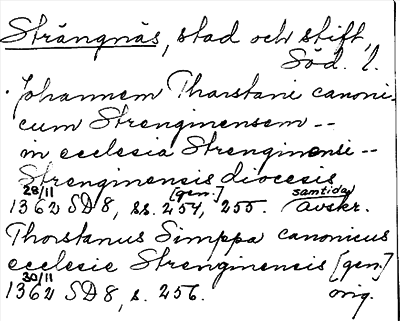 Strängnäs, stad och stift,
Söd. l.
Johannem Tharstani canoni-
cum Strenginensem --
in ecclesia Strenginensi --
Strenginensis diocesis
28/11 [gen.] samtida
1362 SD8, ss. 254, 255. avskr.
Thorstanus Simppa canonicus
ecclesie Strenginensis [gen.]
30/11
1362 SD8, s. 256. orig.